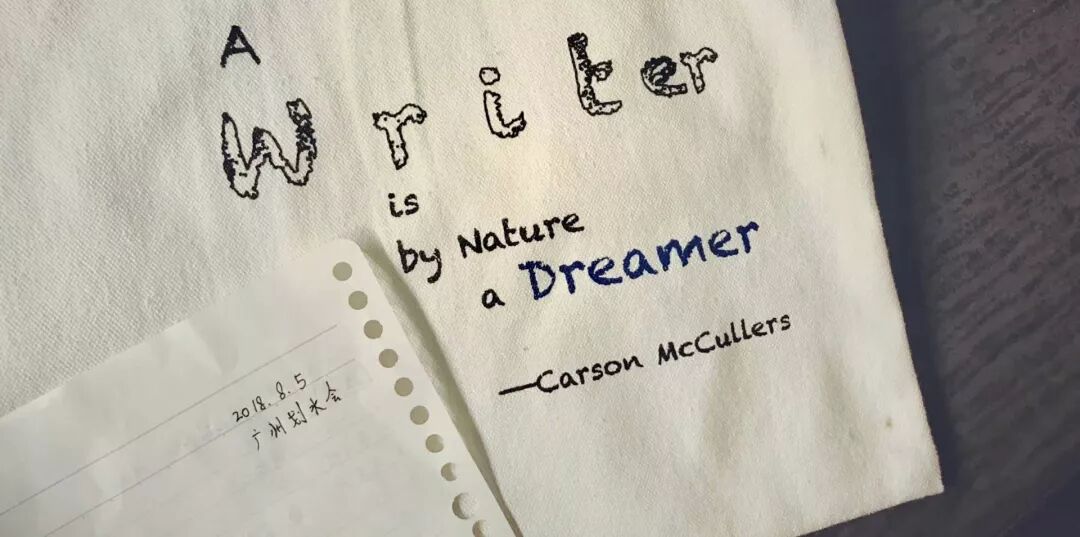 A
Writer
is
by Nature
a Dreamer
—Carson McCullers
2018.8.5
广州划水会